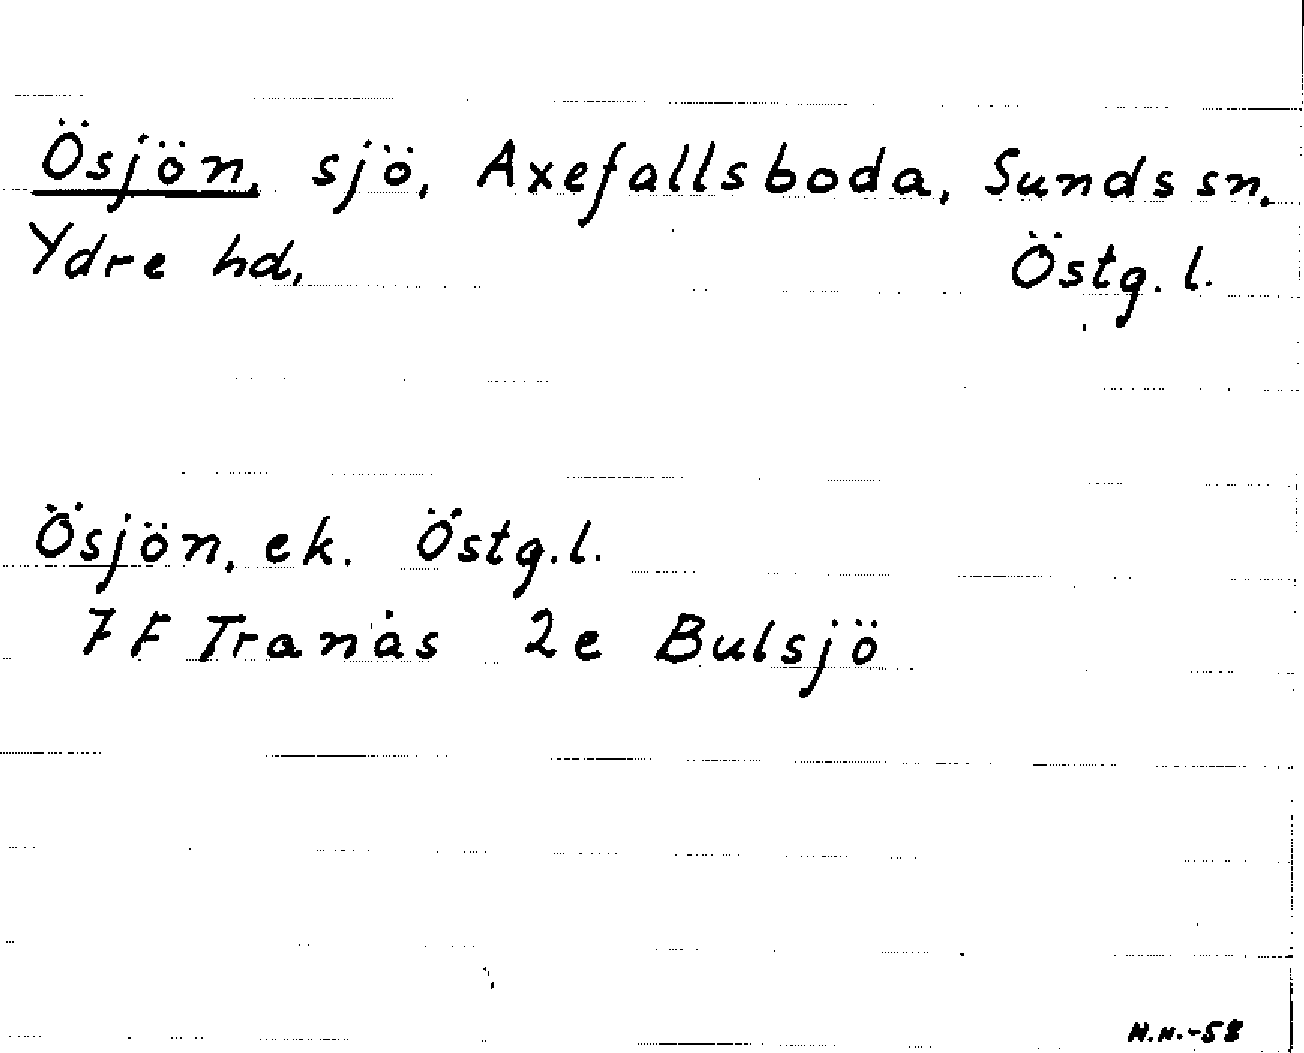 Ösjön, sjö, Axefallsboda, Sunds sn,
Ydre hd, Östg. l.
Ösjön, ek. Östg. l.
7F Tranås 2e Bulsjö
H.H.-58